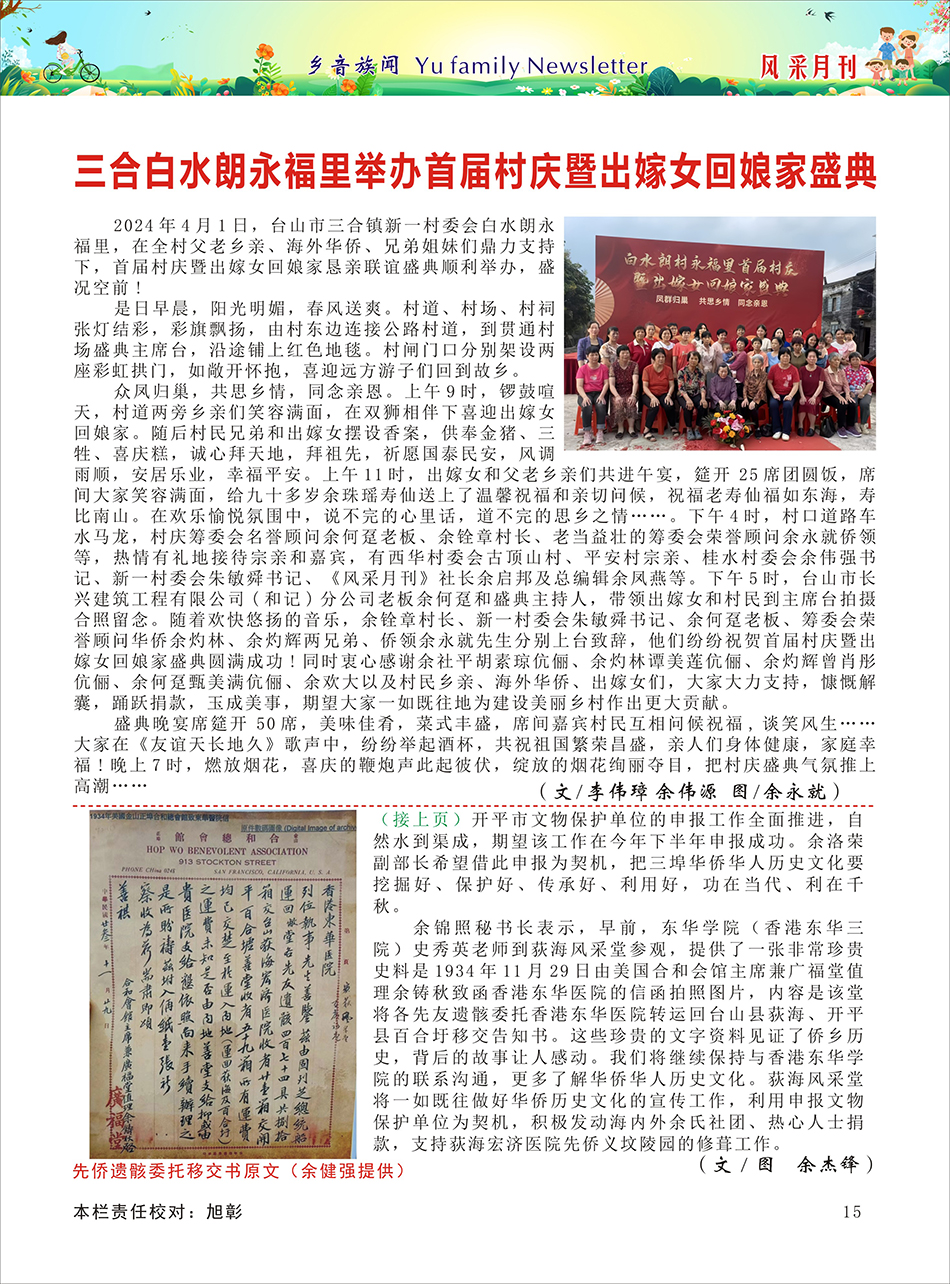 乡音族闻 Yu family Newsletter
风采月刊
三合白水朗永福里举办首届村庆暨出嫁女回娘家盛典
2024年4月1日，台山市三合镇新一村委会白水朗永
福里，在全村父老乡亲、海外华侨、兄弟姐妹们鼎力支持
下，首届村庆暨出嫁女回娘家恳亲联谊盛典顺利举办，盛
况空前！
是日早晨，阳光明媚，春风送爽。村道、村场、村祠
张灯结彩，彩旗飘扬，由村东边连接公路村道，到贯通村
场盛典主席台，沿途铺上红色地毯。村闸门口分别架设两
座彩虹拱门，如敞开怀抱，喜迎远方游子们回到故乡。
众凤归巢，共思乡情，同念亲恩。上午9时，锣鼓喧
天，村道两旁乡亲们笑容满面，在双狮相伴下喜迎出嫁女
回娘家。随后村民兄弟和出嫁女摆设香案，供奉金猪、三
牲、喜庆糕，诚心拜天地，拜祖先，祈愿国泰民安，风调
雨顺，安居乐业，幸福平安。上午11时，出嫁女和父老乡亲们共进午宴，筵开25席团圆饭，席
间大家笑容满面，给九十多岁余珠瑶寿仙送上了温馨祝福和亲切问候，祝福老寿仙福如东海，寿
比南山。在欢乐愉悦氛围中，说不完的心里话，道不完的思乡之情……。下午4时，村口道路车
水马龙，村庆筹委会名誉顾问余何趸老板、余铨章村长、老当益壮的筹委会荣誉顾问余永就侨领
等，热情有礼地接待宗亲和嘉宾，有西华村委会古顶山村、平安村宗亲、桂水村委会余伟强书
记、新一村委会朱敏舜书记、《风采月刊》社长余启邦及总编辑余凤燕等。下午5时，台山市长
兴建筑工程有限公司(和记)分公司老板余何趸和盛典主持人，带领出嫁女和村民到主席台拍摄
合照留念。随着欢快悠扬的音乐，余铨章村长、新一村委会朱敏舜书记、余何趸老板、筹委会荣
誉顾问华侨余灼林、余灼辉两兄弟、侨领余永就先生分别上台致辞，他们纷纷祝贺首届村庆暨出
嫁女回娘家盛典圆满成功！同时衷心感谢余社平胡素琼伉俪、余灼林谭美莲伉俪、余灼辉曾肖彤
伉俪、余何趸甄美满伉俪、余欢大以及村民乡亲、海外华侨、出嫁女们，大家大力支持，慷慨解
囊，踊跃捐款，玉成美事，期望大家一如既往地为建设美丽乡村作出更大贡献。
盛典晚宴席筵开50席，美味佳肴，菜式丰盛，席间嘉宾村民互相问候祝福,谈笑风生……
大家在《友谊天长地久》歌声中，纷纷举起酒杯，共祝祖国繁荣昌盛，亲人们身体健康，家庭幸
福！晚上7时，燃放烟花，喜庆的鞭炮声此起彼伏，绽放的烟花绚丽夺目，把村庆盛典气氛推上
高潮……
(文/李伟璋 余伟源 图/余永就)
白水朗村永福里首届村庆
暨出嫁女回娘家盛典
凤群归巢 共思乡情 同念亲恩
原件數碼圖像 (Digital Image of archive
館會總和合
HOP WO BENEVOLENT ASSOCIATION
913 STOCKTON STREET
PHONE CHina 0241 SAN FRANCISCO, CALIFORNIA, U. S. A.
香港東華醫院
列位執事先生善鑒茲由國列芝總統船
運回敝堂各先友遺骸四百七十四具共捌拾
箱交台山荻海宏濟医院收者廿壹箱交開
平百合塘善堂收者五十九箱所有運費
均已交楚至於運入內地(運回荻海及百合圩)
之運費未知是否由內地善堂支給抑或由
貴医院支給懇依照向来手續辦理之
是所盼禱茲附入俩紙壹張祈
察收為荷耑肅即頌
善祺
合和會館主席兼廣福堂值理余鑄秋啓
廣福堂
先侨遗骸委托移交书原文（余健强提供）
（接上页）开平市文物保护单位的申报工作全面推进，自
然水到渠成，期望该工作在今年下半年申报成功。余洛荣
副部长希望借此申报为契机，把三埠华侨华人历史文化要
挖掘好、保护好、传承好、利用好，功在当代、利在千
秋。
余锦照秘书长表示，早前，东华学院（香港东华三
院）史秀英老师到荻海风采堂参观，提供了一张非常珍贵
史料是1934年11月29日由美国合和会馆主席兼广福堂值
理余铸秋致函香港东华医院的信函拍照图片，内容是该堂
将各先友遗骸委托香港东华医院转运回台山县荻海、开平
县百合圩移交告知书。这些珍贵的文字资料见证了侨乡历
史，背后的故事让人感动。我们将继续保持与香港东华学
院的联系沟通，更多了解华侨华人历史文化。荻海风采堂
将一如既往做好华侨历史文化的宣传工作，利用申报文物
保护单位为契机，积极发动海内外余氏社团、热心人士捐
款，支持荻海宏济医院先侨义坟陵园的修葺工作。
（文/图 余杰锋）
本栏责任校对：旭彰
15